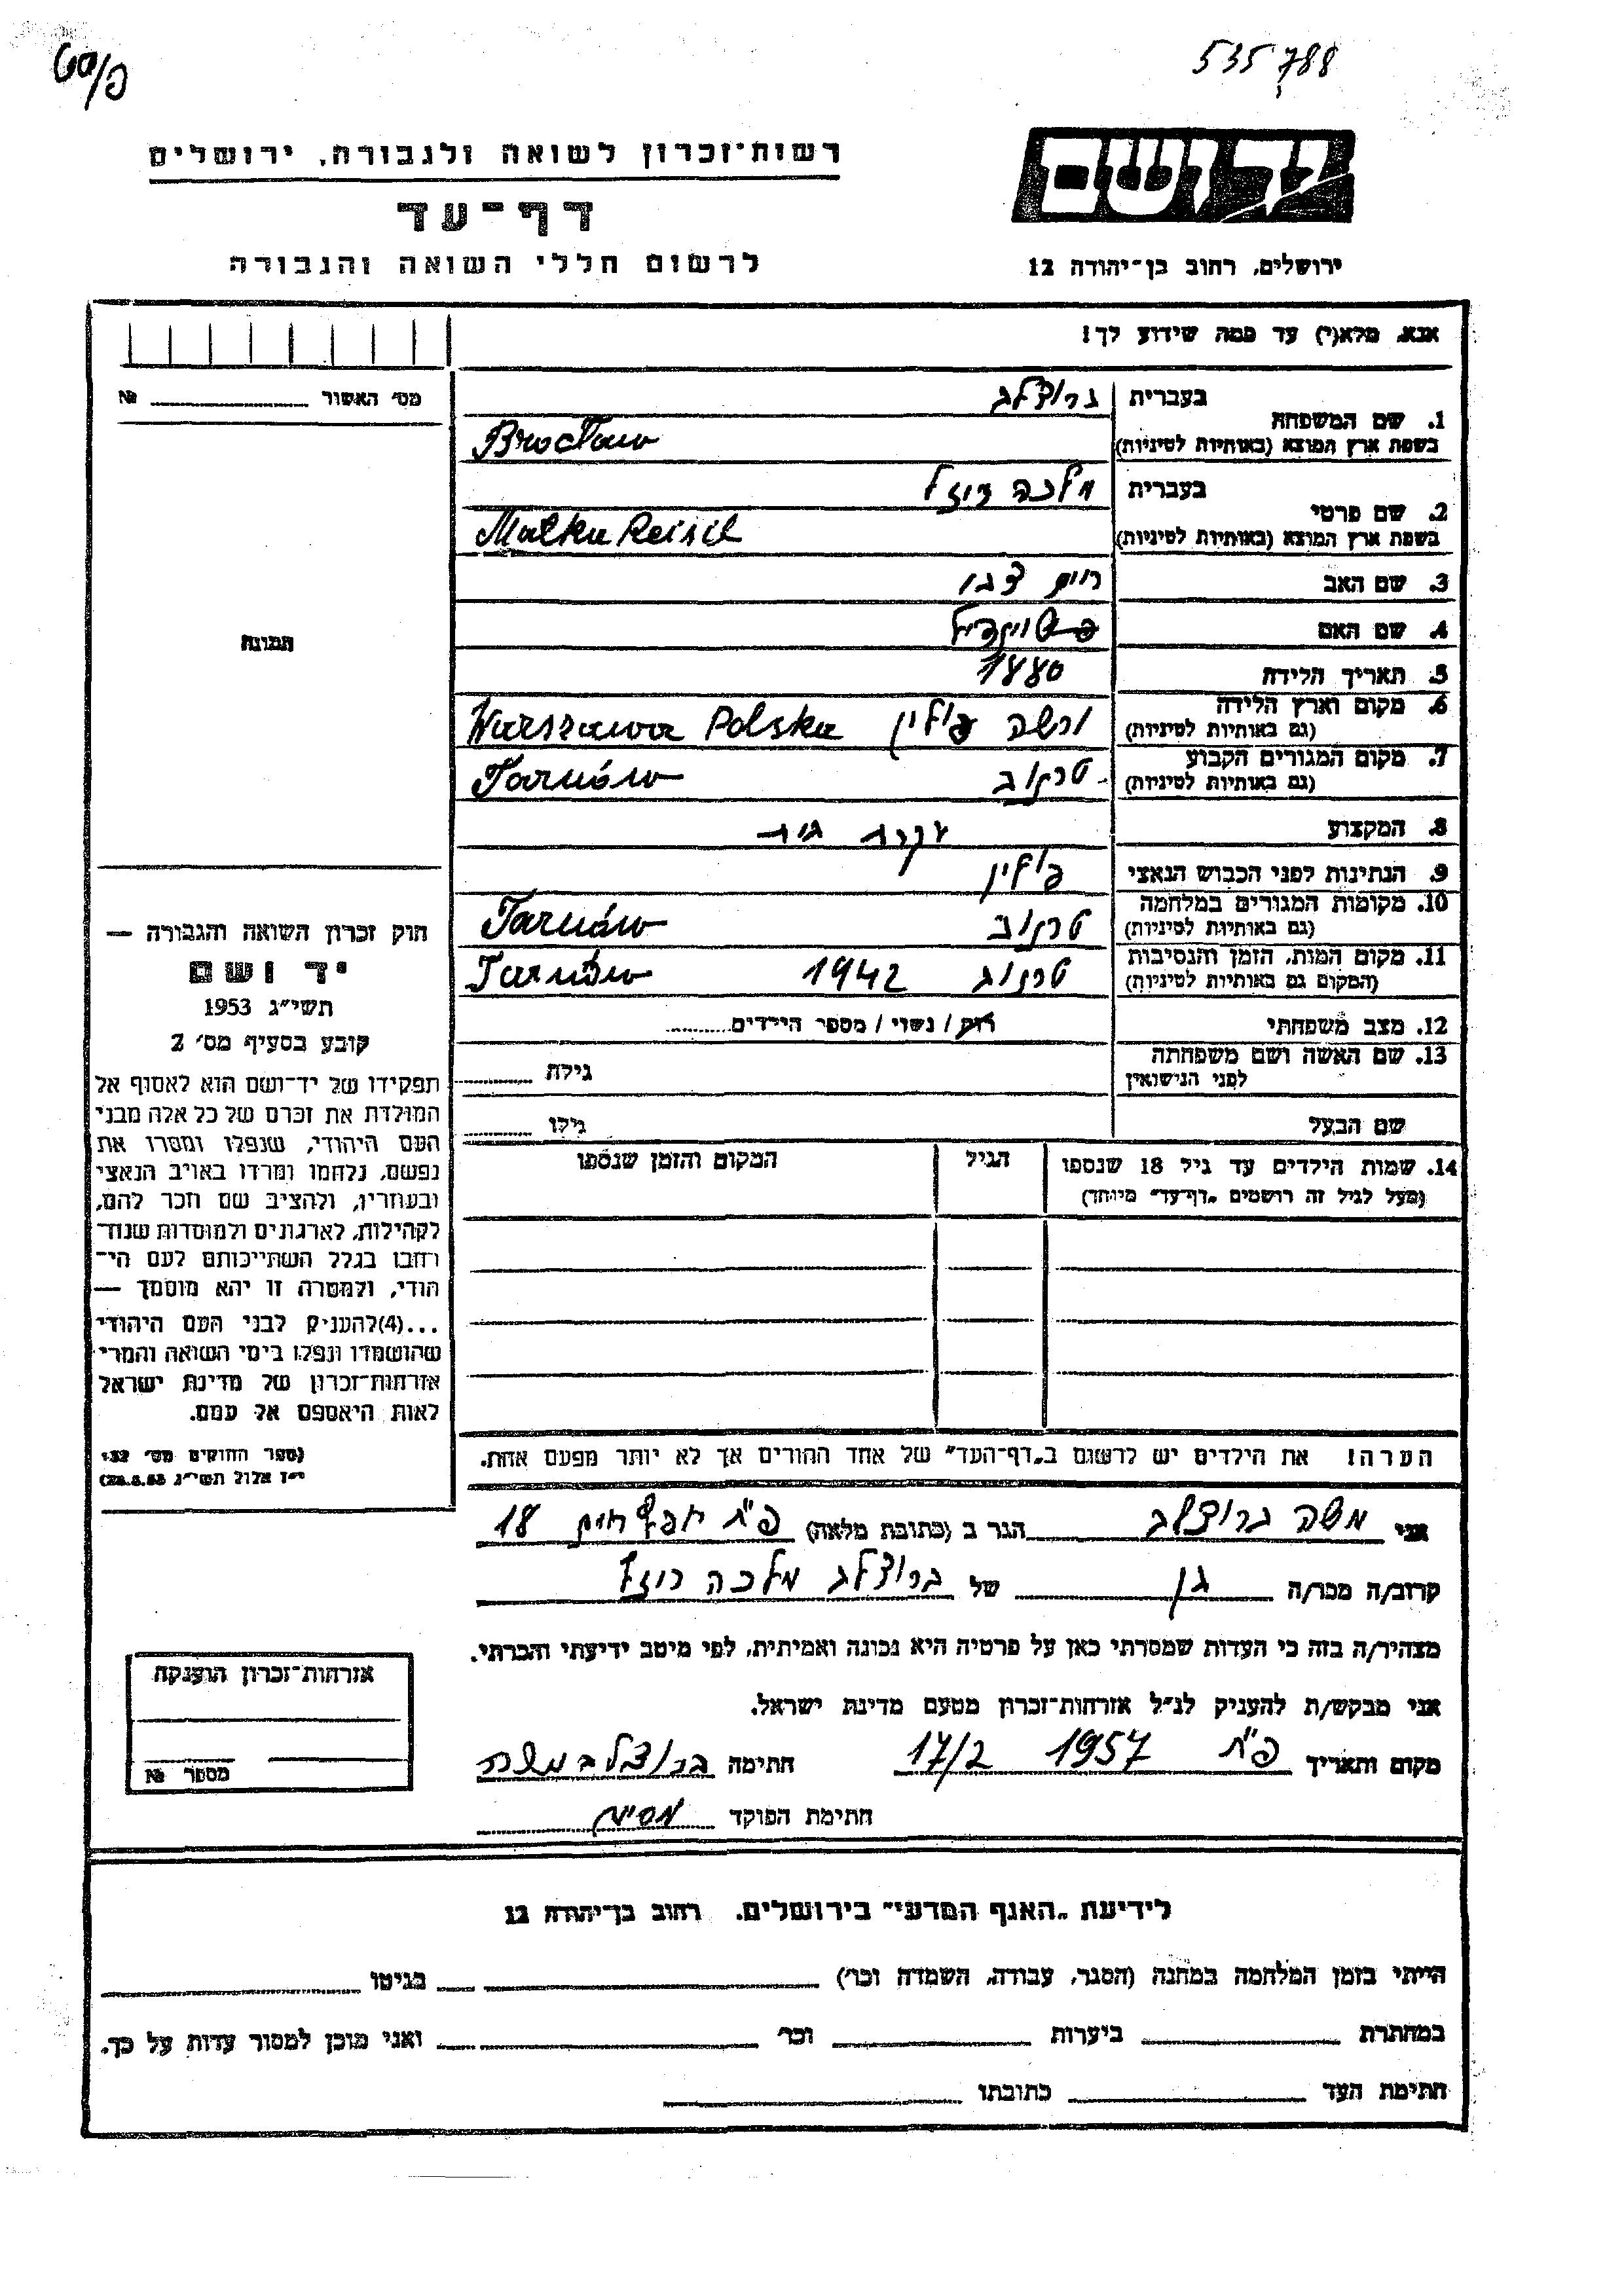 535788
רשות־זכרון לשואה ולגבורה, ירושלים
יד ושם
דף־עד
לרשום חללי השואה והגבורה
ירושלים, רחוב בן־יהודה 12
אנא, מלא(י) עד כמה שידוע לך!
מס׳ האשור № 
1. שם המשפחה בעברית ברוצלב
בשפת ארץ המוצא (באותיות לטיניות) Brocław
2. שם פרטי בעברית מלכה רוזל
בשפת ארץ המוצא (באותיות לטיניות) Malka Reisil
3. שם האב חיים צבי
4. שם האם
5. תאריך הלידה 1880
6. מקום וארץ הלידה (גם באותיות לטיניות) ורשה פולין Warszawa Polska
7. מקום המגורים הקבוע (גם באותיות לטיניות) טרנוב Tarnów
8. המקצוע עקרת בית
9. הנתינות לפני הכבוש הנאצי פולין
10. מקומות המגורים במלחמה (גם באותיות לטיניות) טרנוב Tarnów
11. מקום המות, הזמן והנסיבות (המקום גם באותיות לטיניות) טרנוב 1942 Tarnów
12. מצב משפחתי רוק / נשוי / מספר הילדים
13. שם האשה ושם משפחתה לפני הנישואין גילה
שם הבעל גילו
14. שמות הילדים עד גיל 18 שנספו הגיל המקום והזמן שנספו
(מעל לגיל זה רושמים „דף־עד״ מיוחד)
הערה! את הילדים יש לרשום ב„דף־העד״ של אחד ההורים אך לא יותר מפעם אחת.
תמונה
חוק זכרון השואה והגבורה —
יד ושם
תשי״ג 1953
קובע בסעיף מס׳ 2
תפקידו של יד־ושם הוא לאסוף אל
המולדת את זכרם של כל אלה מבני
העם היהודי, שנפלו ומסרו את
נפשם, נלחמו ומרדו באויב הנאצי
ובעוזריו, ולהציב שם וזכר להם,
לקהילות, לארגונים ולמוסדות שנח־
רחבו בגלל השתייכותם לעם הי־
הודי, ולמטרה זו יהא מוסמך —
...(4)להעניק לבני העם היהודי
שהושמדו ונפלו בימי השואה והמרי
אזרחות־זכרון של מדינת ישראל
לאות היאספם אל עמם.
(ספר החוקים מס׳ 132,
י״ז אלול תשי״ג 28.8.53)
אני משה ברוצלב הגר ב (כתובת מלאה) פ״ת חפץ חיים 18
קרוב/ה מכר/ה בן של ברוצלב מלכה רוזל
מצהיר/ה בזה כי העדות שמסרתי כאן על פרטיה היא נכונה ואמיתית, לפי מיטב ידיעתי והכרתי.
אני מבקש/ת להעניק לנ״ל אזרחות־זכרון מטעם מדינת ישראל.
מקום ותאריך פ״ת 1957 17/2 חתימה ברוצלב משה
חתימת הפוקד
אזרחות־זכרון הוענקה
מספר №
לידיעת „האגף המדעי״ בירושלים, רחוב בן־יהודה 12
הייתי בזמן המלחמה במחנה (הסגר, עבודה, השמדה וכו׳) בגיטו
במחתרת ביערות וכו׳ ואני מוכן למסור עדות על כך.
חתימת העד כתובתו